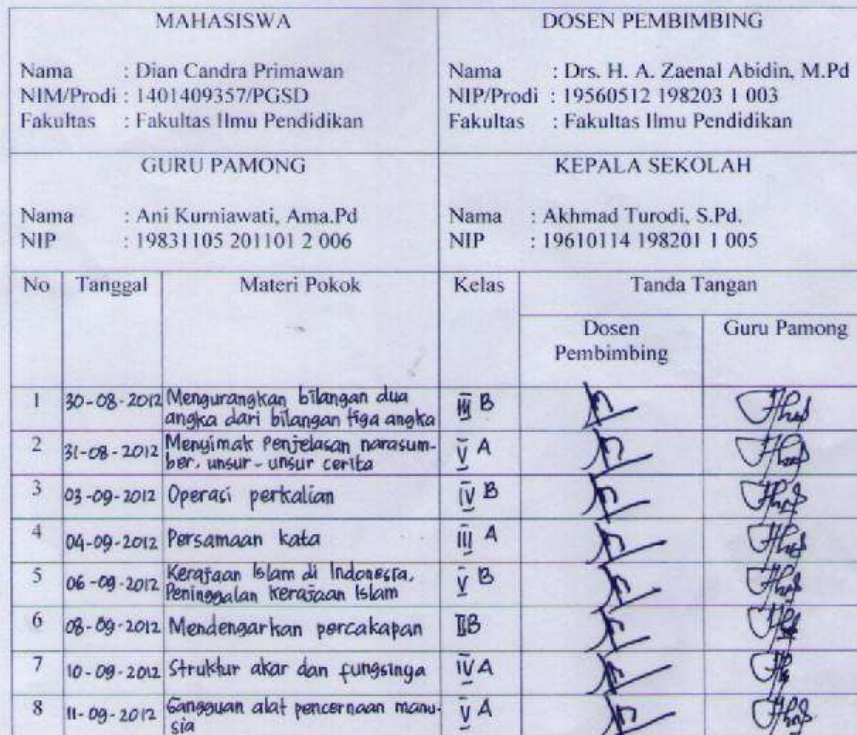 MAHASISWA
Nama : Dian Candra Primawan
NIM/Prodi : 1401409357/PGSD
Fakultas : Fakultas Ilmu Pendidikan
DOSEN PEMBIMBING
Nama : Drs. H. A. Zaenal Abidin, M.Pd
NIP/Prodi : 19560512 198203 1 003
Fakultas : Fakultas Ilmu Pendidikan
GURU PAMONG
Nama : Ani Kurniawati, Ama.Pd
NIP : 19831105 201101 2 006
KEPALA SEKOLAH
Nama : Akhmad Turodi, S.Pd.
NIP : 19610114 198201 1 005
No Tanggal Materi Pokok Kelas Tanda Tangan
Dosen Guru Pamong
Pembimbing
1 30-08-2012 Mengurangkan bilangan dua III B
angka dari bilangan tiga angka
2 31-08-2012 Menyimak Penjelasan narasum- V A
ber, unsur-unsur cerita
3 03-09-2012 Operasi perkalian IV B
4 04-09-2012 Persamaan kata III A
5 06-09-2012 Kerajaan Islam di Indonesia, V B
Peninggalan kerajaan Islam
6 08-09-2012 Mendengarkan percakapan II B
7 10-09-2012 Struktur akar dan fungsinya IV A
8 11-09-2012 Gangguan alat pencernaan manu- V A
sia